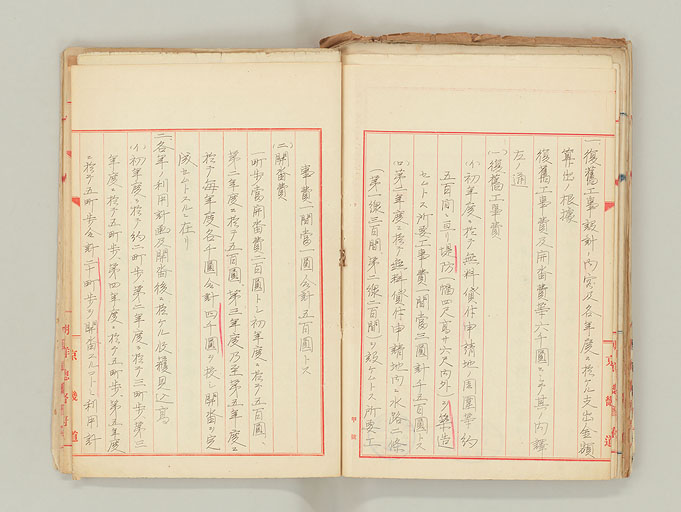 一、復舊工事設計ノ内容及各年度ニ於ケル支出金額
算出ノ根據
復舊工事費及開畓費等六千圓ニシテ其ノ内譯
左ノ通
(一)復舊工事費
(イ)初年度ニ於テ無料貸付申請地ノ周圍等約
五百間ニ亘リ堤防(幅四尺高サ六尺内外)ヲ築造
セムトス所要工事費一間當三圓計千五百圓トス
(ロ)第二年度ニ於テ無料貸付申請地内ニ水路二條
(第一線三百間、第二線二百間)ヲ設ケムトス所要工
事費一間當一圓合計五百圓トス
(二)開畓費
一町步當開畓費二百圓トシ初年度ニ於テ五百圓、
第二年度ニ於テ五百圓、第三年度乃至第五年度ニ
於テ毎年度各千圓合計四千圓ヲ投シ開畓ヲ完
成セムトスルニ在リ
二、各年ノ利用計画及開畓後ニ於ケル收穫見込高
(イ)初年度ニ於テ約二町步、第二年度ニ於テ三町步、第三
年度ニ於テ五町步、第四年度ニ於テ五町步、第五年度
ニ於テ五町步合計二十町步ヲ開畓スルコトヽシ利用計